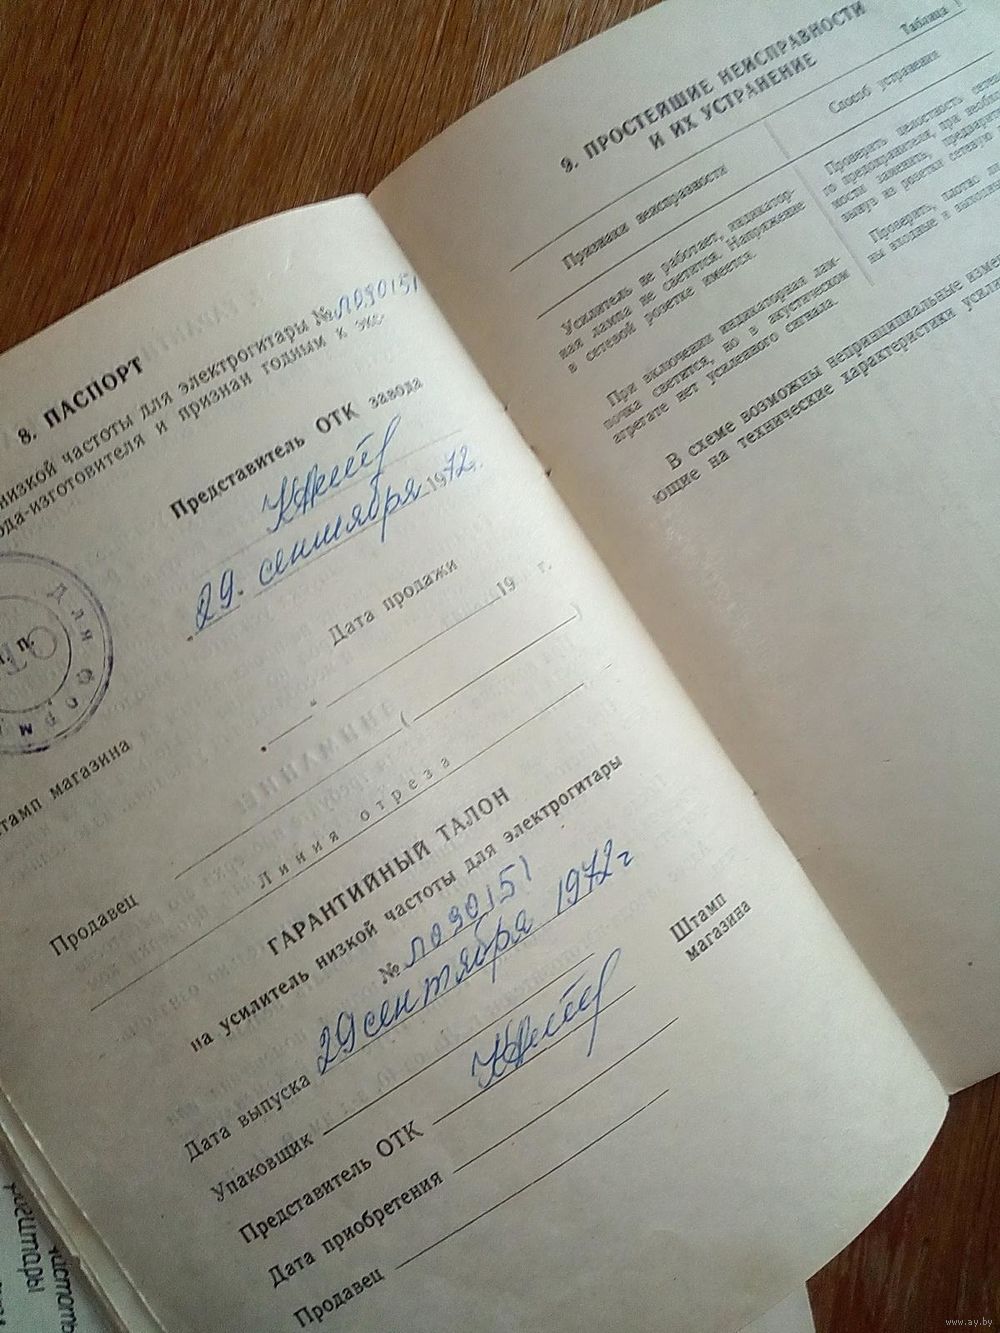 8. ПАСПОРТ
низкой частоты для электрогитары № Л090151
ода-изготовителя и признан годным к экс-
Представитель ОТК завода
29. сентября 1972.
Дата продажи
" 19 г.
( )
Для Форм
тамп магазина
Продавец
Линия отреза
ГАРАНТИЙНЫЙ ТАЛОН
на усилитель низкой частоты для электрогитары
№ Л090151
Дата выпуска 29 сентября 1972 г
Упаковщик
Представитель ОТК
Дата приобретения
Продавец
Штамп
магазина
9. ПРОСТЕЙШИЕ НЕИСПРАВНОСТИ
И ИХ УСТРАНЕНИЕ
Таблица 1
Признаки неисправности
Способ устранения
Усилитель не работает, индикатор-
ная лампа не светится. Напряжение
в сетевой розетке имеется.
Проверить целостность сетево
го предохранителя, при необхо
мости заменить, предварите
вынув из розетки сетевую
При включении индикаторная лам-
почка светится, но в акустическом
агрегате нет усиленного сигнала.
Проверить, плотно ли
ны входные и выполн
В схеме возможны непринципиальные измен
ющие на технические характеристики усилит
гитары
чистоты
www.ay.by